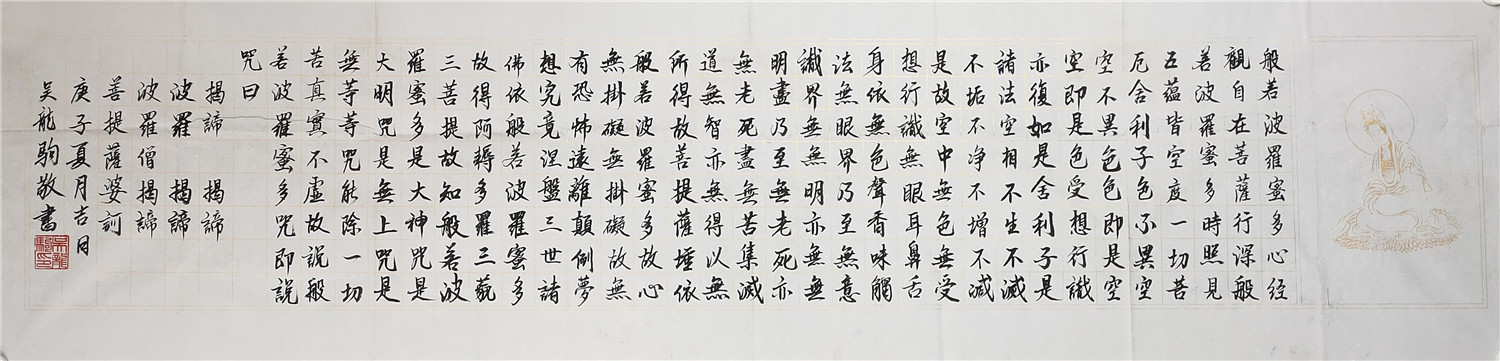 般若波羅蜜多心经
觀自在菩薩行深般
若波羅蜜多時照見
五蕴皆空度一切苦
厄舍利子色不異空
空不異色色即是空
空即是色受想行識
亦復如是舍利子是
諸法空相不生不滅
不垢不净不增不减
是故空中無色無受
想行識無眼耳鼻舌
身依無色聲香味觸
法無眼界乃至無意
識界無無明亦無無
明盡乃至無老死亦
無老死盡無苦集滅
道無智亦無得以無
所得故菩提薩埵依
般若波羅蜜多故心
無掛礙無掛礙故無
有恐怖遠離顛倒夢
想究竟涅盤三世諸
佛依般若波羅蜜多
故得阿耨多羅三藐
三菩提故知般若波
羅蜜多是大神咒是
大明咒是無上咒是
無等等咒能除一切
苦真實不虛故説般
若波羅蜜多咒即説
咒曰
揭諦 揭諦
波羅 揭諦
波羅僧揭諦
菩提薩婆訶
庚子夏月吉日
吴龍駒敬書
吴龍駒印